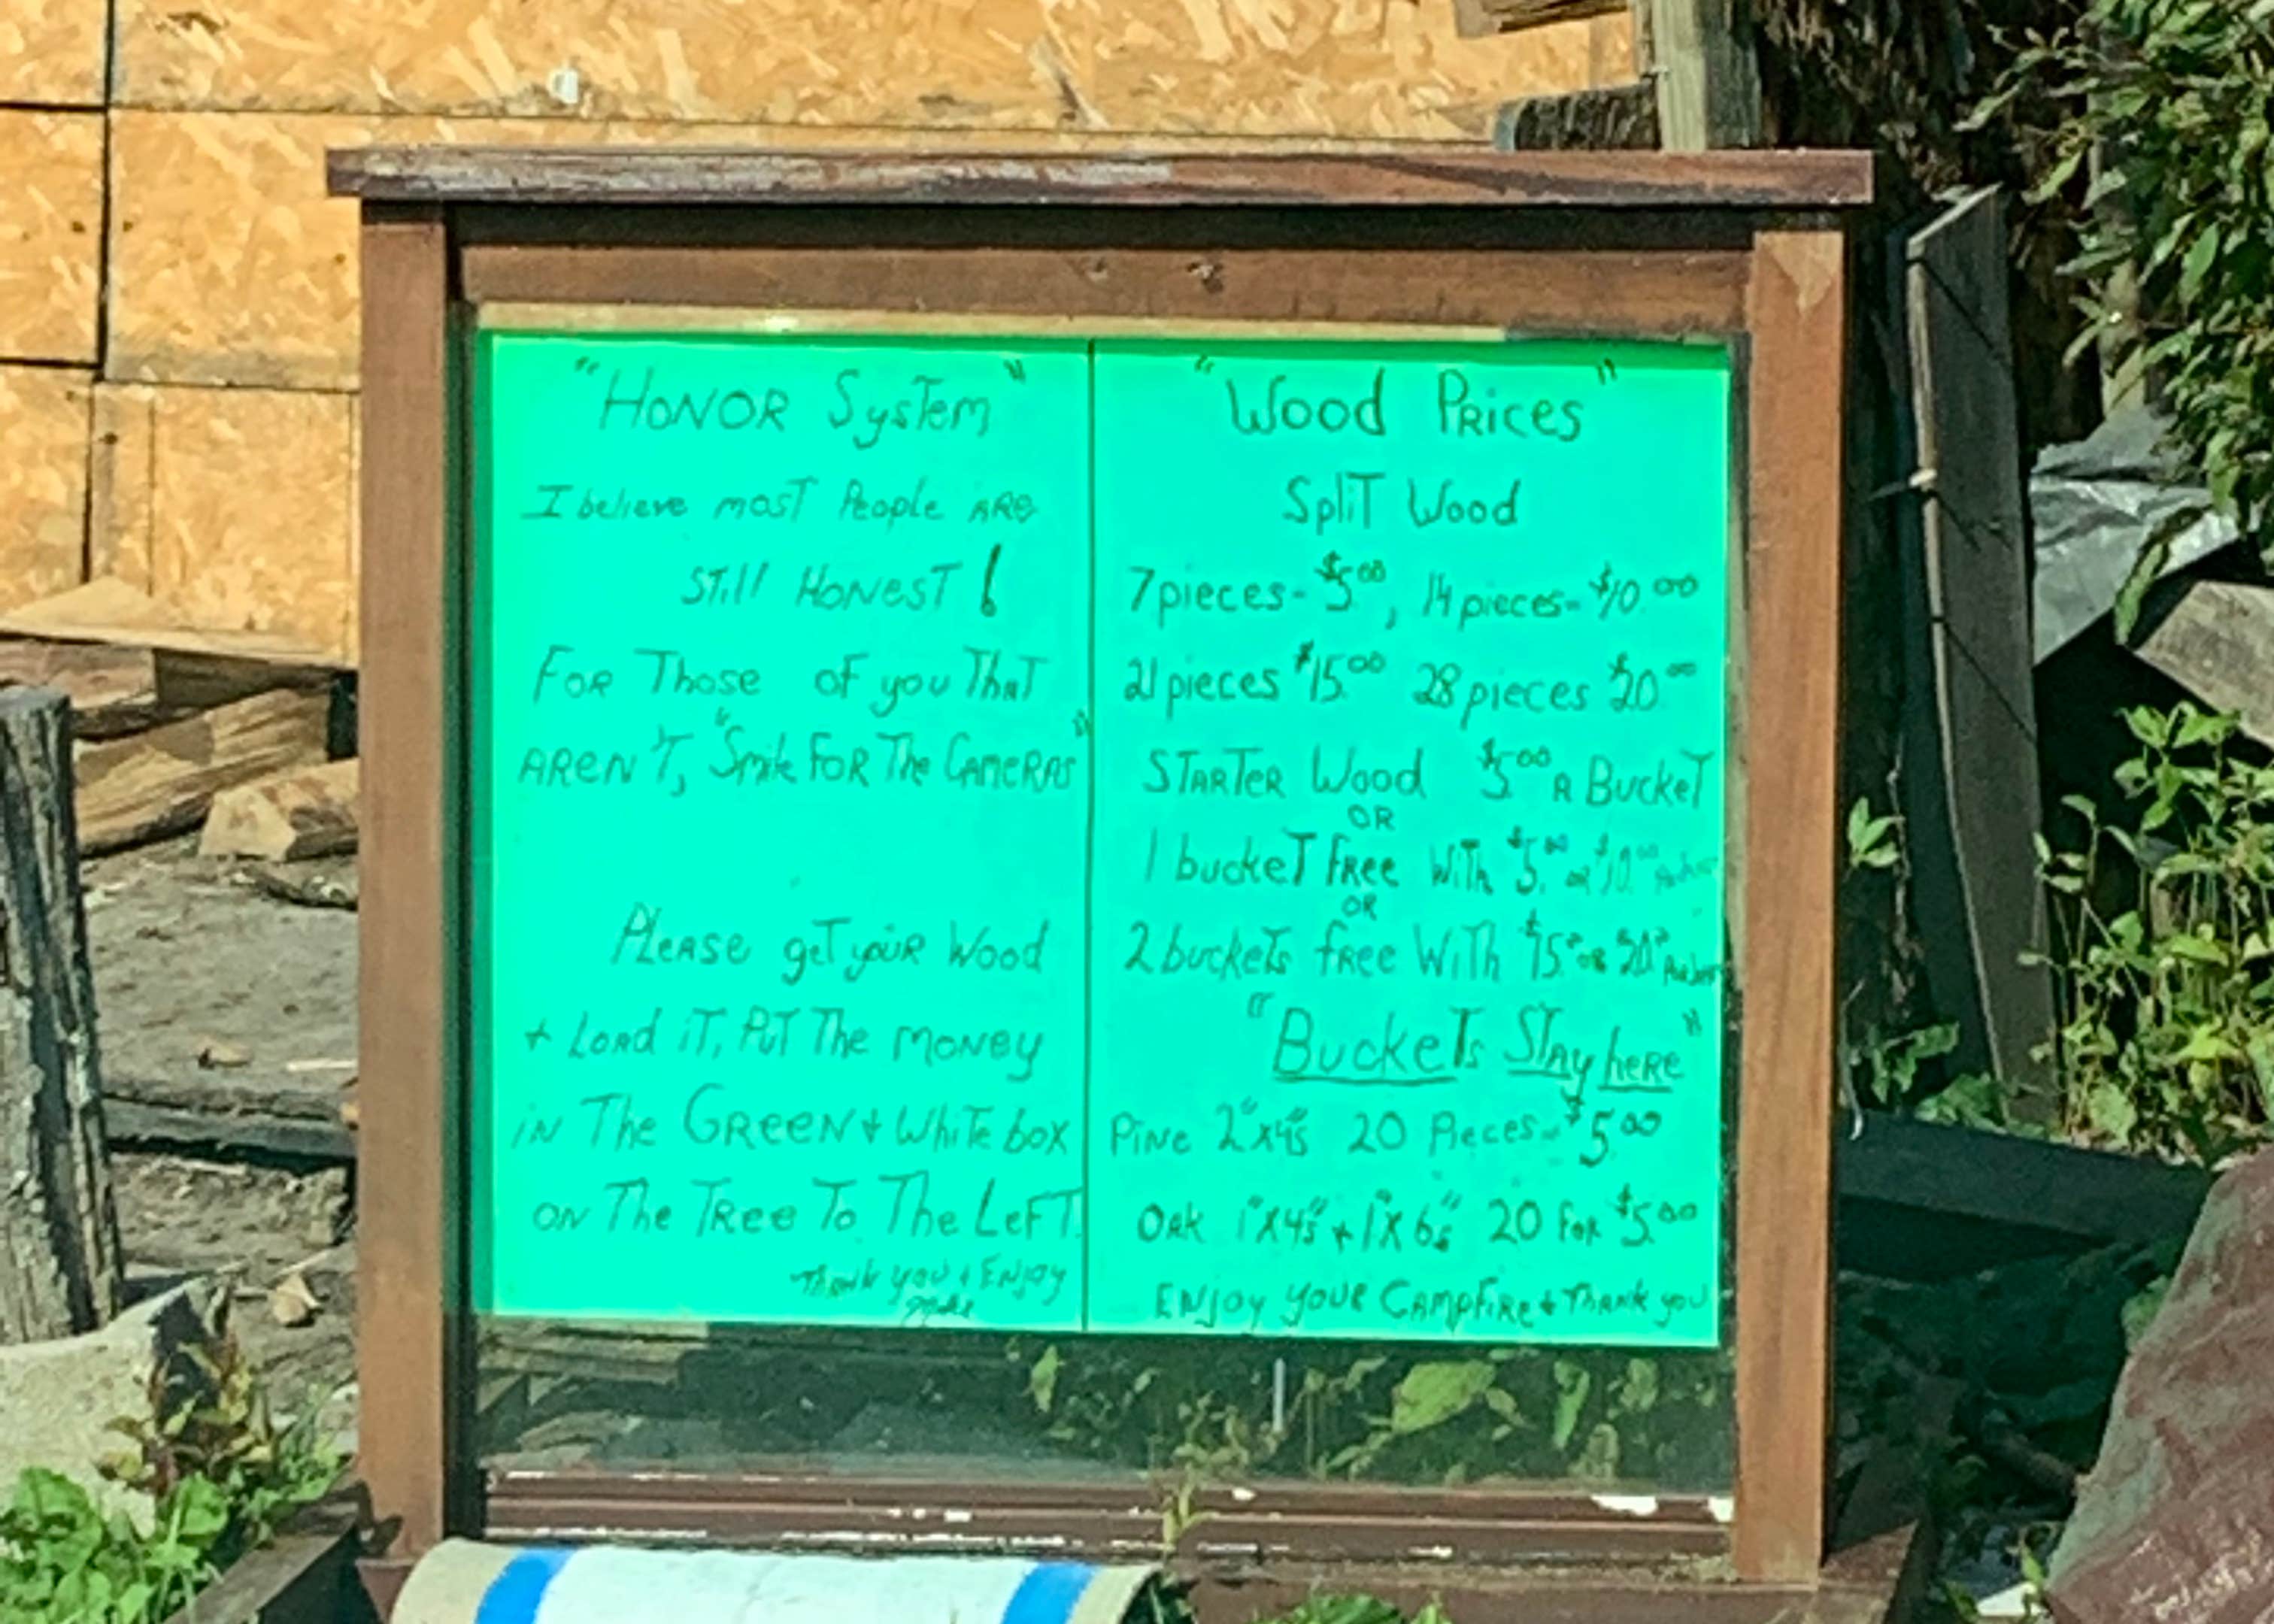 "HONOR SysTem"
I believe mosT People ARe
STill HONeST!
FOR Those of you ThaT
AREN'T, "Smile FOR The CAMERAS"
Please geT your Wood
+ Load iT, PuT The money
iN The GREEN + WhiTe box
ON The TRee To The LefT.
Thank you + ENjoy
"Wood PRices"
SpliT Wood
7 pieces - $5.00, 14 pieces - $10.00
21 pieces $15.00 28 pieces $20.00
STARTER Wood $5.00 A BuckeT
OR
1 buckeT FRee WiTh $5.00 or $10.00
OR
2 buckeTs fRee WiTh $15.00 or $20.00
"BuckeTs STAy heRe"
PiNe 2"x4"s 20 Pieces - $5.00
OAk 1"x4"s + 1"x6"s 20 FoR $5.00
ENjoy youR CAmpFiRe + Thank you